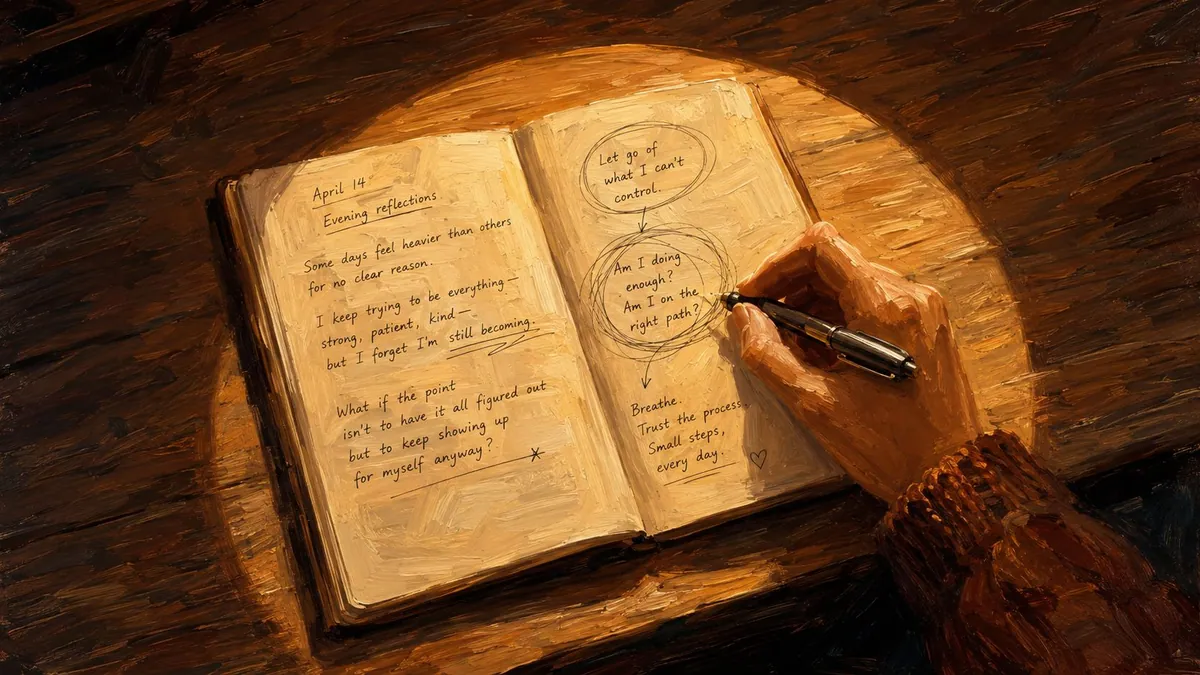 April 14
Evening reflections
Some days feel heavier than others
for no clear reason.
I keep trying to be everything—
strong, patient, kind—
but I forget I'm still becoming.
What if the point
isn't to have it all figured out
but to keep showing up
for myself anyway?
Let go of
what I can't
control.
Am I doing
enough?
Am I on the
right path?
Breathe.
Trust the process.
Small steps,
every day.